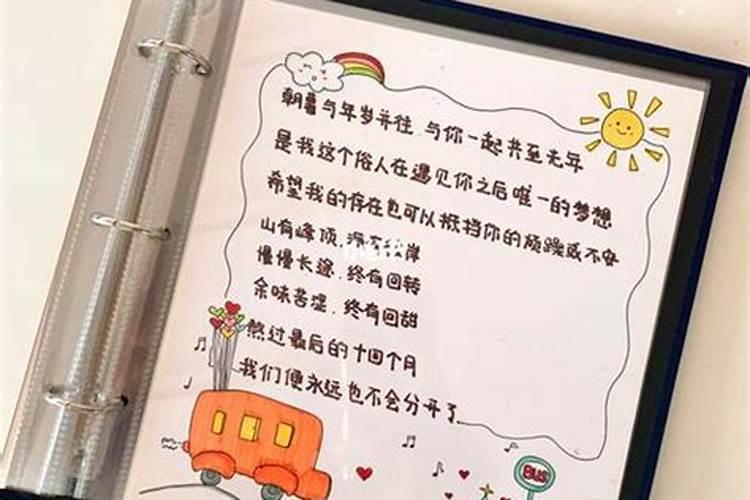 朝暮与年岁并往,与你一起共至光年
是我这个俗人在遇见你之后唯一的梦想
希望我的存在也可以抵挡你的烦躁或不安
山有峰顶 岸
慢慢长途.终有回转
余味苦涩.终有回甜
熬过最后的十四个月
我们便永远也不会分开了
BUS